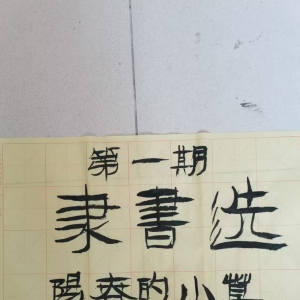 第一期
隶書选
陽春的小草